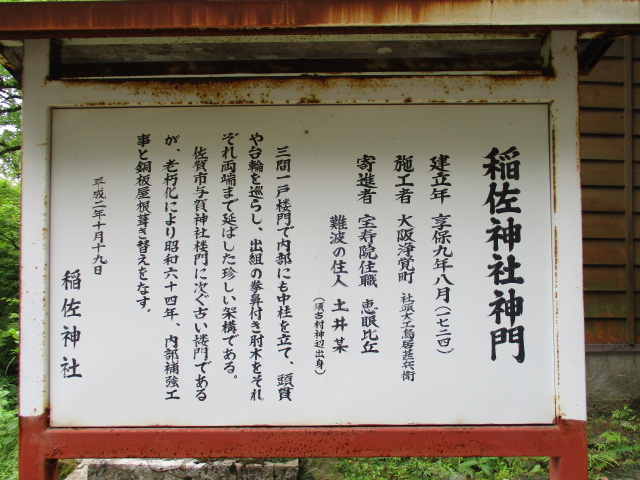 稲佐神社神門
建立年 享保九年八月(一七二四)
施工者 大阪浄覚町 社頭大工鳥居甚兵衛
寄進者 宝寿院住職 恵眼比丘
難波の住人 土井某
(須古村神辺出身)
三間一戸楼門で内部にも中柱を立て、頭貫
や台輪を巡らし、出組の拳鼻付き肘木をそれ
ぞれ両端まで延ばした珍しい架構である。
佐賀市与賀神社楼門に次ぐ古い楼門である
が、老朽化により昭和六十四年、内部補強工
事と銅板屋根葺き替えをなす。
平成二年十月十九日
稲佐神社